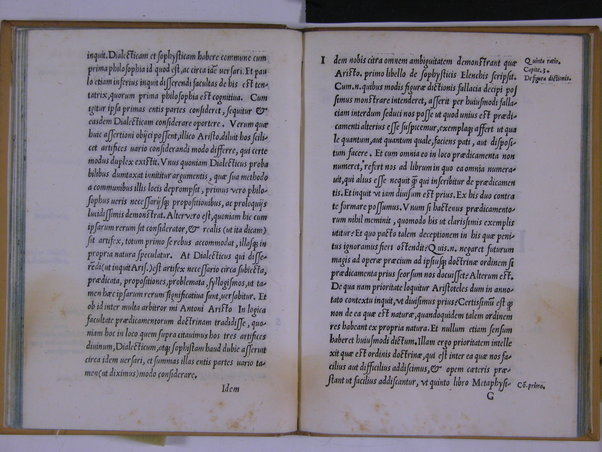 inquit. Dialecticam et sophysticam habere commune cum
prima philosophia id quod est, ac circa idē versari. Et pau
lo etiam inferius inquit disserendi facultas de his est ten-
tatrix, quorum prima philosophia est cognitiua. Cum
igitur ipsa primas entis partes consideret, sequitur &
easdem Dialecticam considerare oportere. Verum quæ
huic assertioni obijci possent, illico Aristo. diluit hos scili-
cet artifices uario considerandi modo differre, qui certe
modus duplex existit. Vnus quoniam Dialecticus proba
bilibus dumtaxat innititur argumentis, quæ sua methodo
a communibus illis locis depromsit, primus vero philo-
sophus ueris necessarijsq; propositionibus, ac proloquijs
lucidissimis demonstrat. Alter vero est, quoniam hic cum
ipsarum rerum sit considerator, & realis (ut ita dicam)
sit artifex, totum primo se rebus accommodat, illasq; in
propria natura speculatur. At Dialecticus qui disse-
redi (ut inquit Aris.) est artifex necessario circa subiecta,
prædicata, propositiones, problemata, syllogismos, ut ta
men hæc ipsarum rerum significatiua sunt, uersabitur. Et
ob id inter multa arbitror mi Antoni Aristo. In logica
facultate prædicamentorum doctrinam tradidisse, quo-
niam hoc in loco quem supra citauimus hos tres artifices
diuinum, Dialecticum, atq; sophystam haud dubie asserit
circa idem uersari, et summas illas entis partes uario ta-
men (ut diximus) modo considerare.
Idem
I dem nobis citra omnem ambiguitatem demonstrant quæ
Aristo. primo libello de sophysticis Elenchis scripsit.
Cum.n. quibus modis figuræ dictionis fallacia decipi pos
semus monstrare intenderet, asserit per huiusmodi falla-
ciam interdum seduci nos posse ut quod unius est prædi-
camenti alterius esse suspicemur, exemplaq; affert ut qua
le quantum, aut quantum quale, faciens pati, aut disposi-
tum facere. Et cum omnia eo in loco prædicamenta non
numeret, refert nos ad librum in quo ea omnia numera-
uit, qui alius esse nequit q̃ qui inscribitur de prædicamen
tis. Et inquit vt iam diuisum est prius. Ex his duo contra
te formare possumus. Vnum si bactenus prædicamento-
rum nihil meminit, quomodo his ut clarissimis exemplis
utitur? Et quo pacto talem deceptionem in his quæ peni-
tus ignoramus fieri ostendit? Quis.n. negaret futurum
magis ad operæ precium ad ipsiusq; doctrinæ ordinem si
prædicamenta prius seorsum nos docuisset? Alterum est.
De qua nam prioritate loquitur Aristoteles dum in anno
tato contextu inquit, vt diuisimus prius? Certissimū est q̃
non de ea quæ est naturæ, quandoquidem talem ordinem
res habeant ex propria natura. Et nullum etiam sensum
haberet huiusmodi dictum. Illam ergo prioritatem intelle
xit quæ est ordinis doctrinæ, qui est inter ea quæ nos fa-
cilius aut difficilius addiscimus, & opem cæteris præ-
stant ut facilius addiscantur, vt quinto libro Metaphysi-
G
Quinta ratio.
Capite. 3.
De figura dictionis.
Cō. primo.